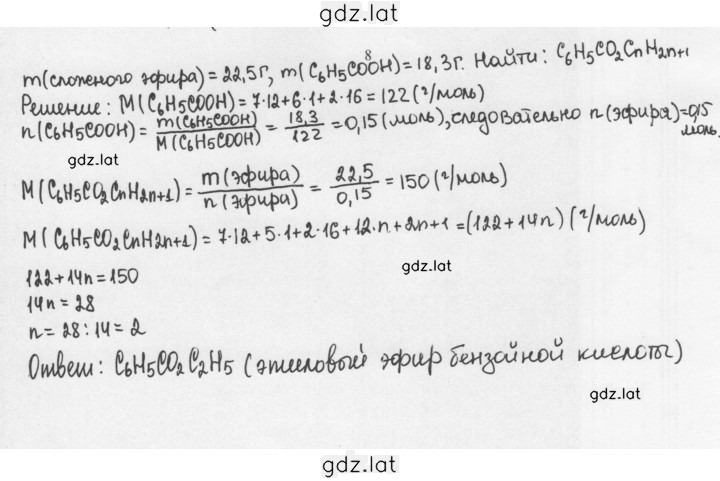 gdz.lat
m(сложного эфира) = 22,5 г, m(C6H5COOH) = 18,3 г. Найти: C6H5CO2CnH2n+1
Решение: M(C6H5COOH) = 7·12+6·1+2·16 = 122 (г/моль)
n(C6H5COOH) = m(C6H5COOH)/M(C6H5COOH) = 18,3/122 = 0,15 (моль), следовательно n(эфира) = 0,15 моль.
gdz.lat
M(C6H5CO2CnH2n+1) = m(эфира)/n(эфира) = 22,5/0,15 = 150 (г/моль)
M(C6H5CO2CnH2n+1) = 7·12+5·1+2·16+12·n+2n+1 = (122+14n) (г/моль)
gdz.lat
122+14n = 150
14n = 28
n = 28:14 = 2
Ответ: C6H5CO2C2H5 (этиловый эфир бензойной кислоты)
gdz.lat
gdz.lat